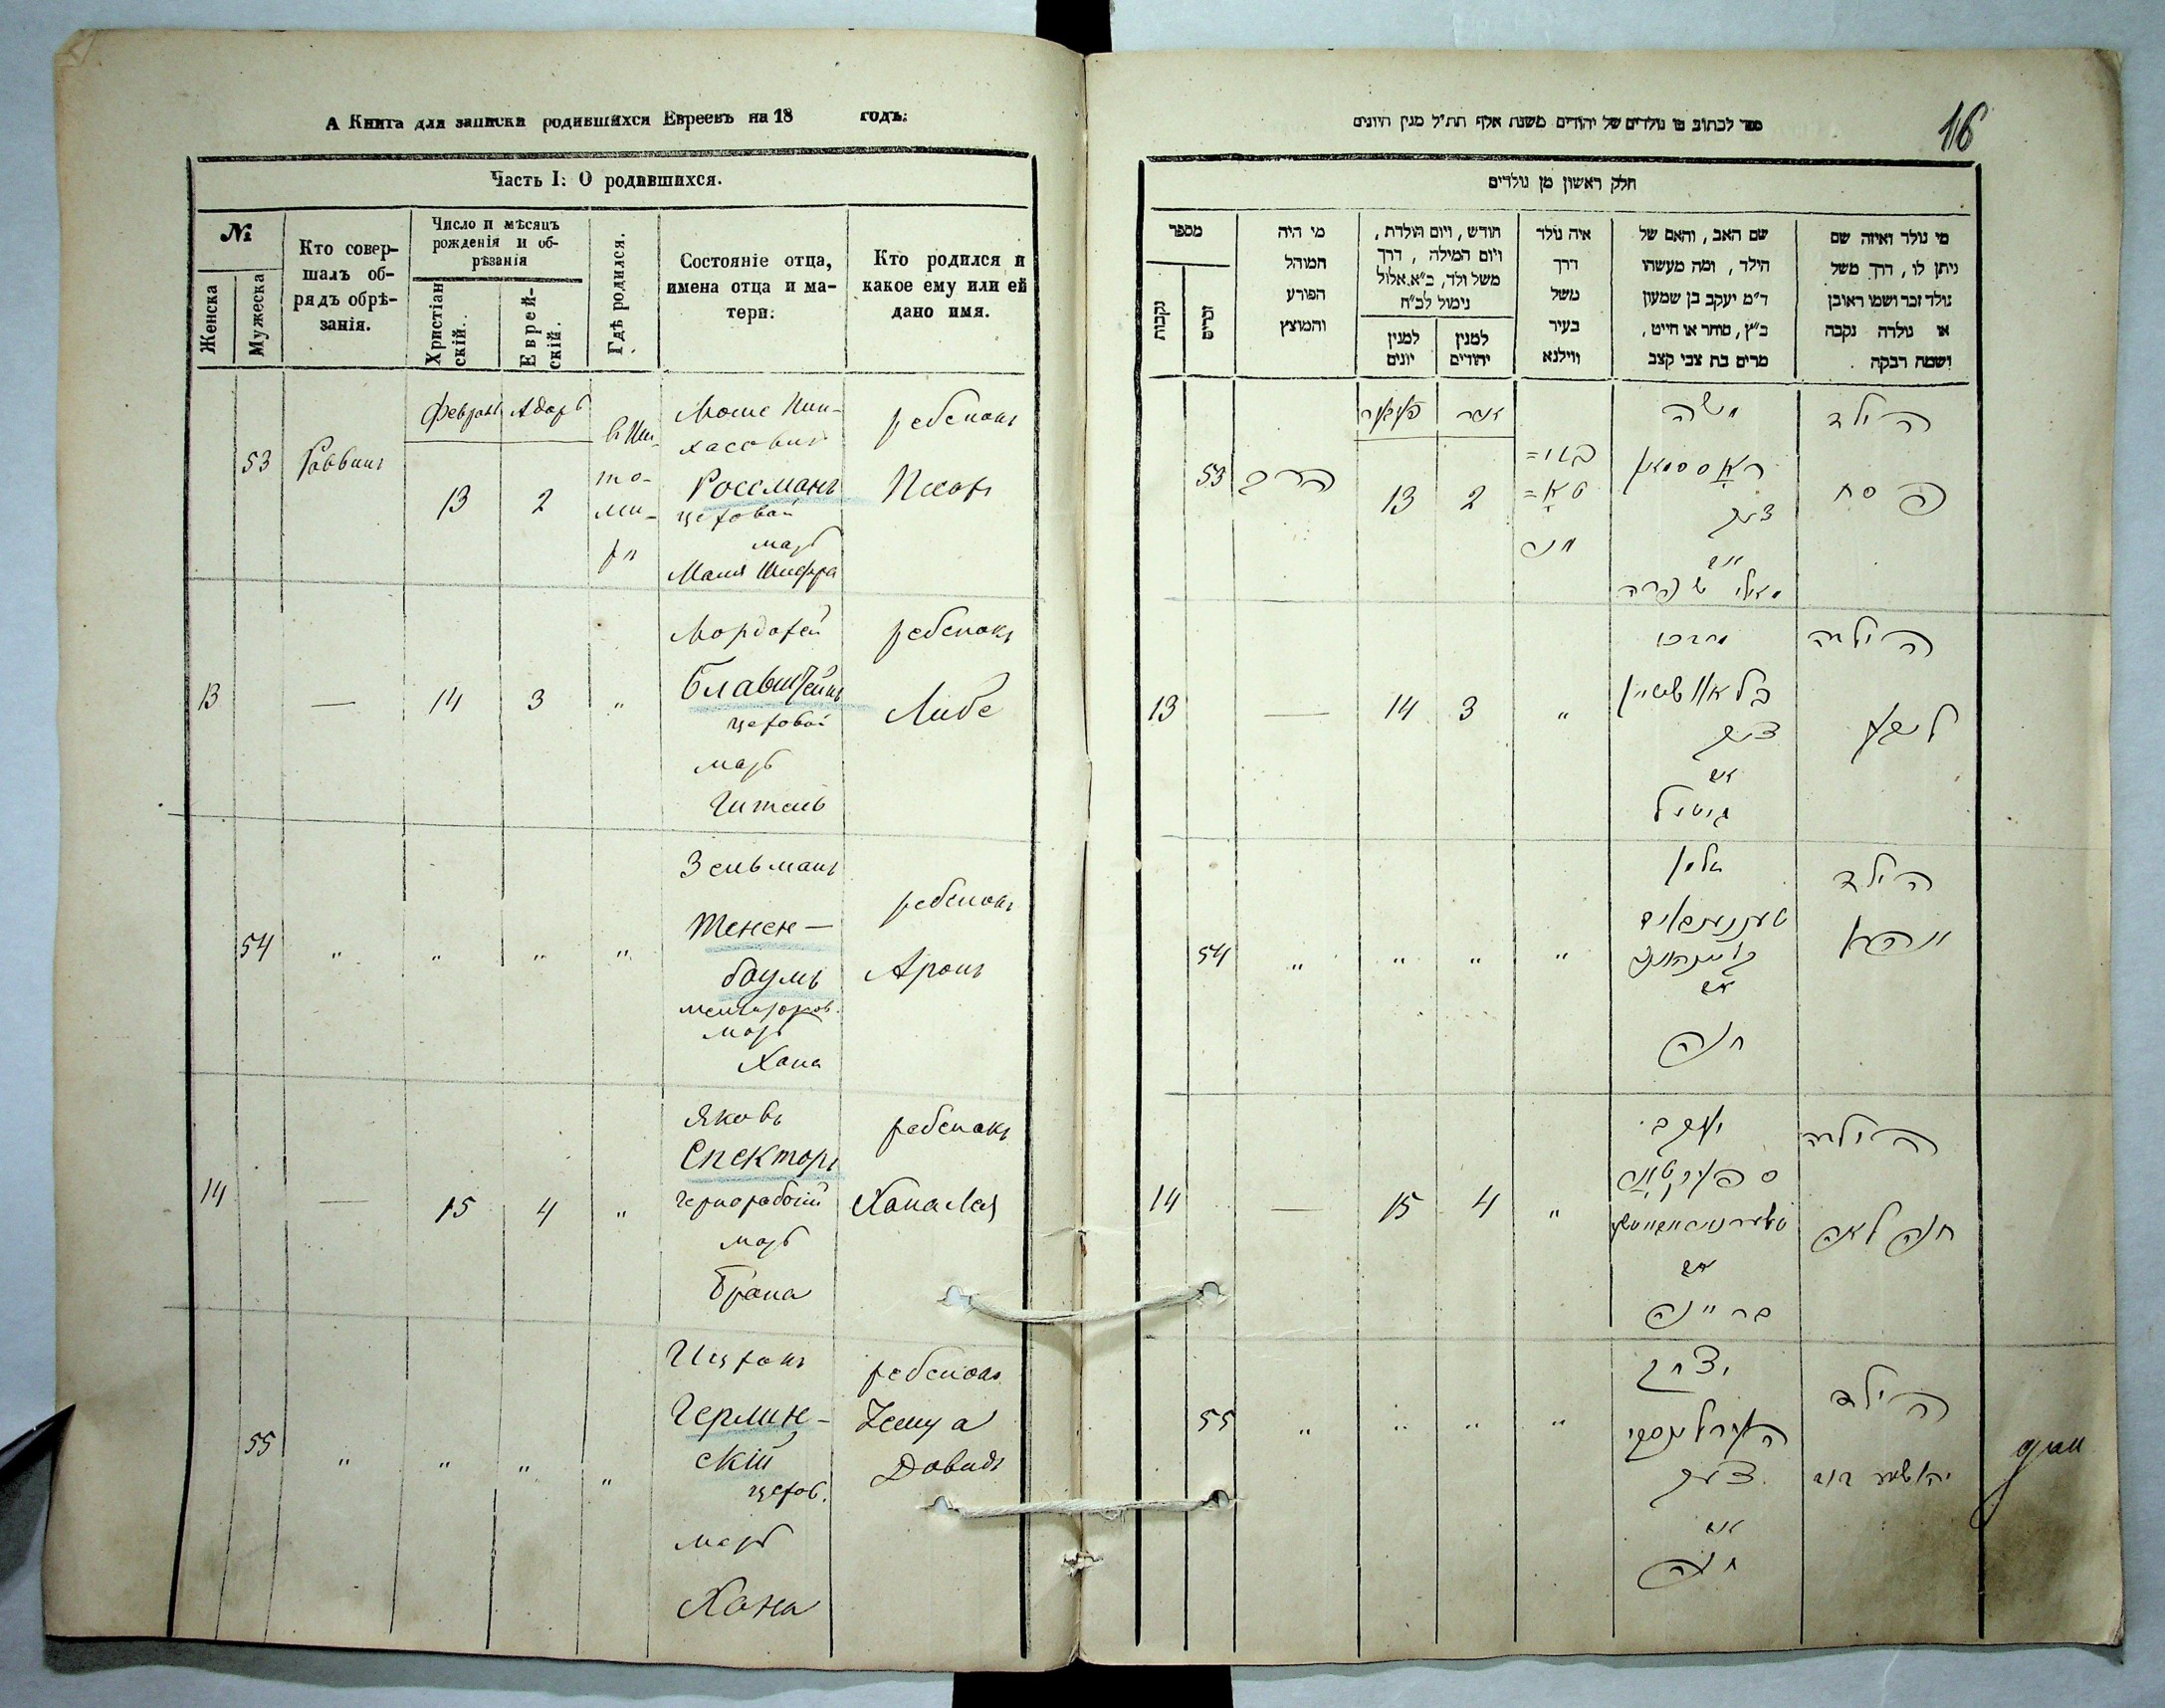 А Книга для записки родившихся Евреевъ на 18 годъ.
Часть I: О родившихся.
№
Женска
Мужеска
Кто совер-
шалъ об-
рядъ обрѣ-
занія.
Число и мѣсяцъ
рожденія и об-
рѣзанія
Христіан
скій.
Еврей-
скій.
Гдѣ родился.
Состояніе отца,
имена отца и ма-
тери.
Кто родился и
какое ему или ей
дано имя.
53
Раввинъ
Адаръ
13
2
Моше Пин-
хасовичъ
Россманъ
цеховой
мать
Маля Шифра
ребенокъ
13
—
14
3
"
Мордохей
Блавштейнъ
цеховой
мать
Гитель
ребенокъ
Либе
54
"
"
"
"
Зельманъ
Тенен-
баумъ
мать
Хана
ребенокъ
Аронъ
14
—
15
4
"
Яковъ
Спекторъ
чернорабочій
мать
Брана
ребенокъ
Хана Лея
55
"
"
"
"
Ицхокъ
Герлин-
скій
цехов.
мать
Хана
ребенокъ
Довидъ
16
ספר לכתוב בו נולדים של יהודים משנת אלף תת״ל מנין היונים
חלק ראשון מן נולדים
מספר
נקבות
זכרים
מי היה
המוהל
הפורע
והמוצץ
חודש, ויום הולדת,
ויום המילה, דרך
משל ולד, כ״א אלול
נימול לכ״ח
למנין
יונים
למנין
יהודים
איה נולד
דרך
משל
בעיר
ווילנא
שם האב, והאם של
הילד, ומה מעשהו
ד״מ יעקב בן שמעון
כ״ץ, סוחר או חייט,
מרים בת צבי קצב
מי נולד ואיזה שם
ניתן לו, דרך משל
נולד זכר ושמו ראובן
או נולדה נקבה
ושמה רבקה
53
הרב
13
2
אדר
משה
ראססמאן
צעך
מאלי שפרה
הילד
פסח
13
—
14
3
"
מרדכי
בלאוושטיין
צעך
אם
גיטל
הילדה
ליבא
54
"
"
"
"
זלמן
טענענבוים
אם
חנה
הילד
אהרן
14
—
15
4
"
יעקב
ספעקטור
אם
בריינה
הילדה
חנה לאה
55
"
"
"
"
יצחק
הערלינסקי
צעך
אם
חנה
הילד
יהושע דוד